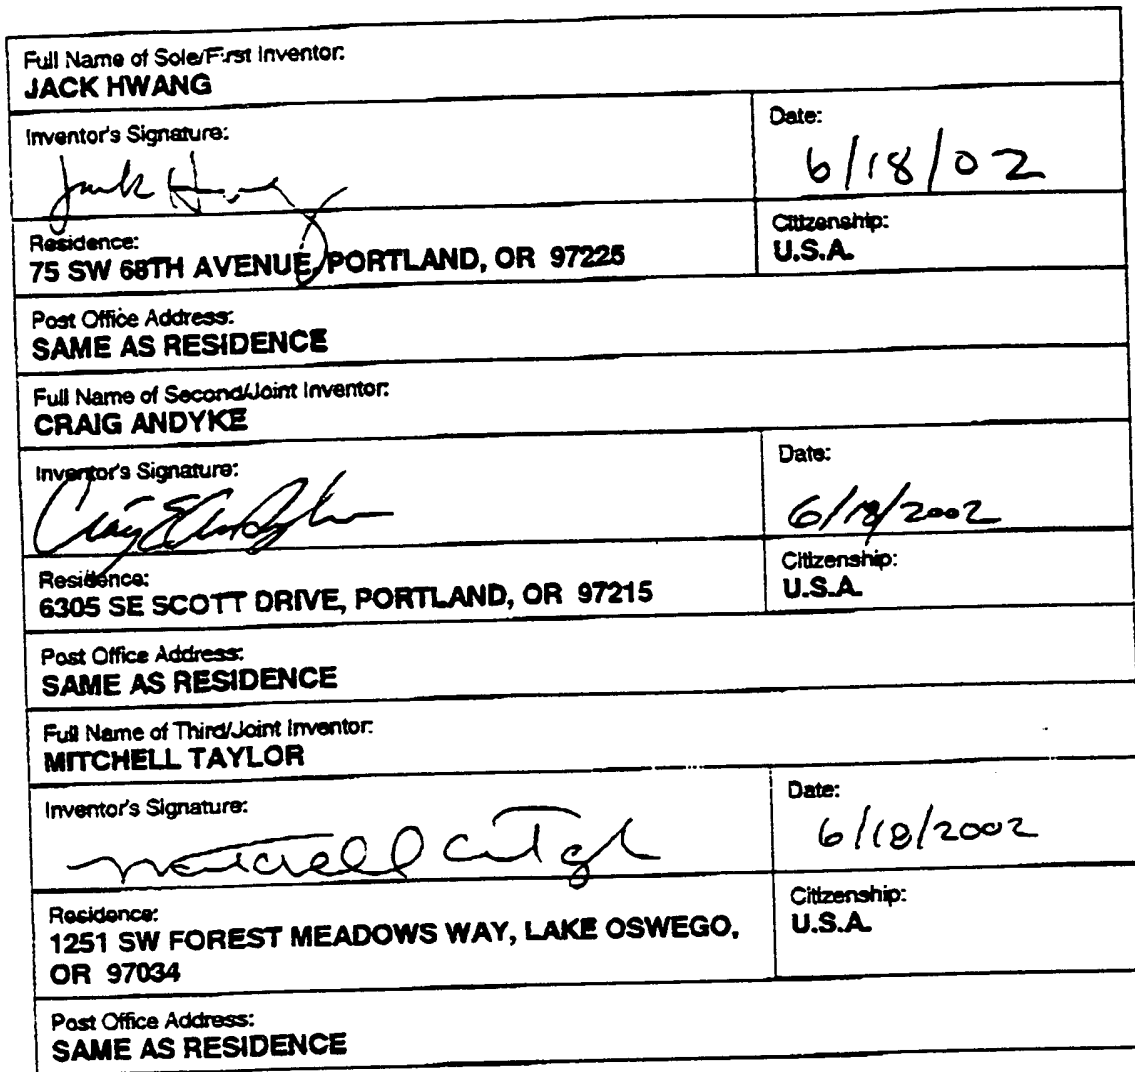 Full Name of Sole/First Inventor:
JACK HWANG
Inventor's Signature:
Date:
Jack Hwang
6/18/02
Residence:
75 SW 68TH AVENUE, PORTLAND, OR 97225
Citizenship:
U.S.A.
Post Office Address:
SAME AS RESIDENCE
Full Name of Second/Joint Inventor:
CRAIG ANDYKE
Inventor's Signature:
Date:
Craig E Andyke
6/18/2002
Residence:
6305 SE SCOTT DRIVE, PORTLAND, OR 97215
Citizenship:
U.S.A.
Post Office Address:
SAME AS RESIDENCE
Full Name of Third/Joint Inventor:
MITCHELL TAYLOR
Inventor's Signature:
Date:
Mitchell C Taylor
6/18/2002
Residence:
1251 SW FOREST MEADOWS WAY, LAKE OSWEGO,
OR 97034
Citizenship:
U.S.A.
Post Office Address:
SAME AS RESIDENCE